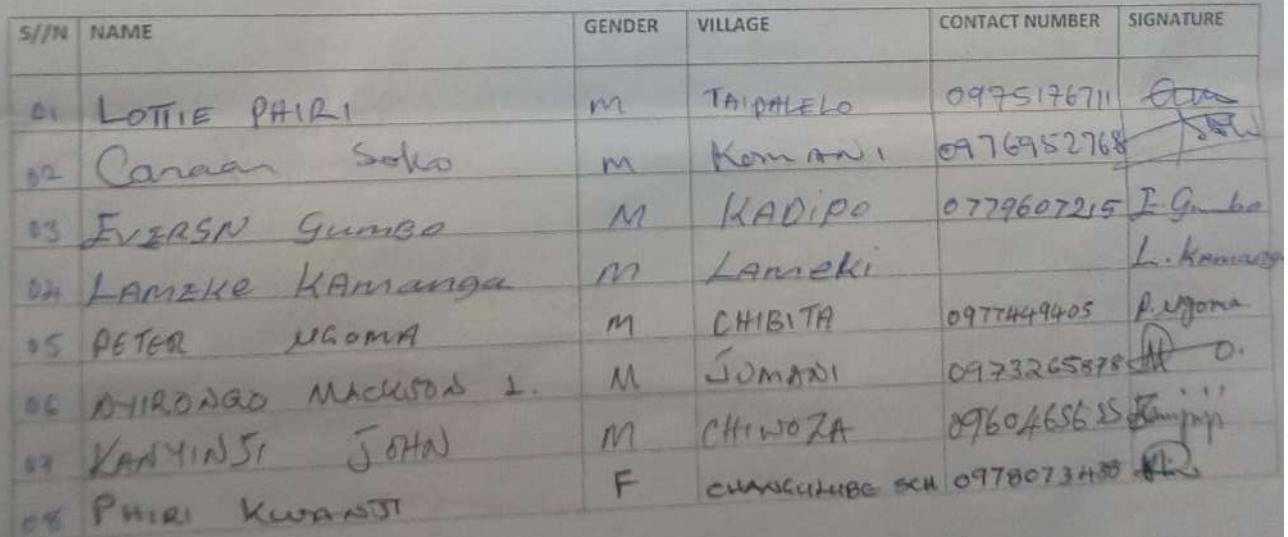 S//N NAME GENDER VILLAGE CONTACT NUMBER SIGNATURE
01 LOTTIE PHIRI M TAIPALELO 0975176711
02 Canaan Soko M KOMANI 0976952768
03 EVERSN GUMBO M KADIPO 0779607215 E. Gumbo
04 LAMEKE KAMANGA M LAMEKI L. Kamanga
05 PETER NGOMA M CHIBITA 0977449405 P. Ngoma
06 NYIRONGO MACKSON I. M JUMANI 0973265878
07 KANYINJI JOHN M CHIWOZA
08 PHIRI KWANJI F SCH